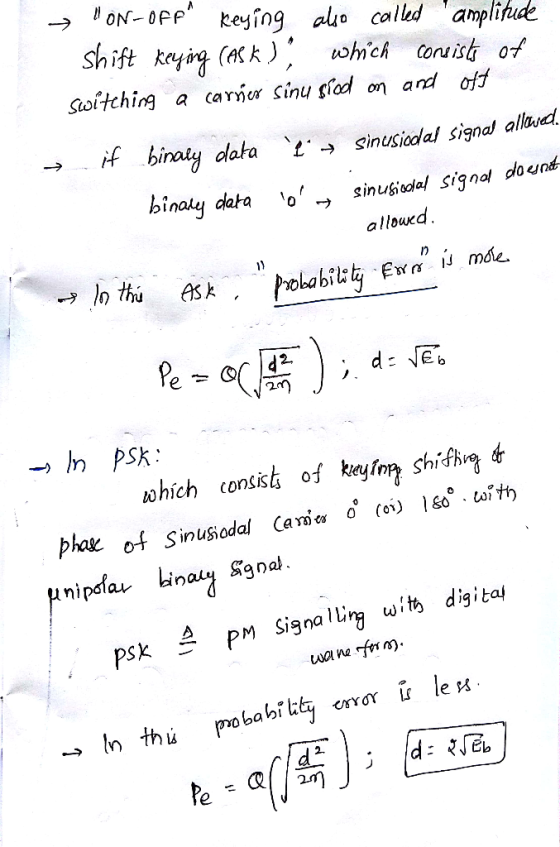 → "ON-OFF" keying also called "amplitude
shift keying (ASK)", which consists of
switching a carrier sinusiod on and off
→ if binary data '1' → sinusiodal signal allowed.
binary data '0' → sinusiodal signal doesnot
allowed.
→ In this ASK, "probability Error" is more
Pe = Q(√(d²/2η)) ; d = √Eb
→ In PSK:
which consists of keying shifting of
phase of sinusiodal carrier 0° (or) 180° with
unipolar binary signal.
PSK ≜ PM signalling with digital
waveform.
→ In this probability error is less.
Pe = Q(√(d²/2η)) ; d = 2√Eb